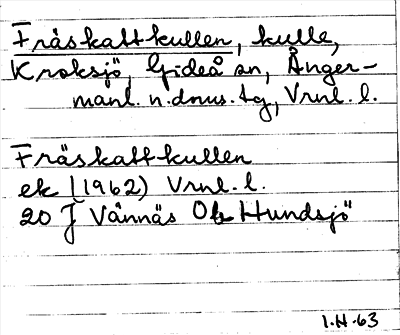 Fräskattkullen, kulle,
Kroksjö, Gideå sn, Ånger-
manl. n. dms. tg, Vrnl. l.
Fräskattkullen
ek (1962) Vrnl. l.
20 J Vännäs Ob Hundsjö
I.H.63